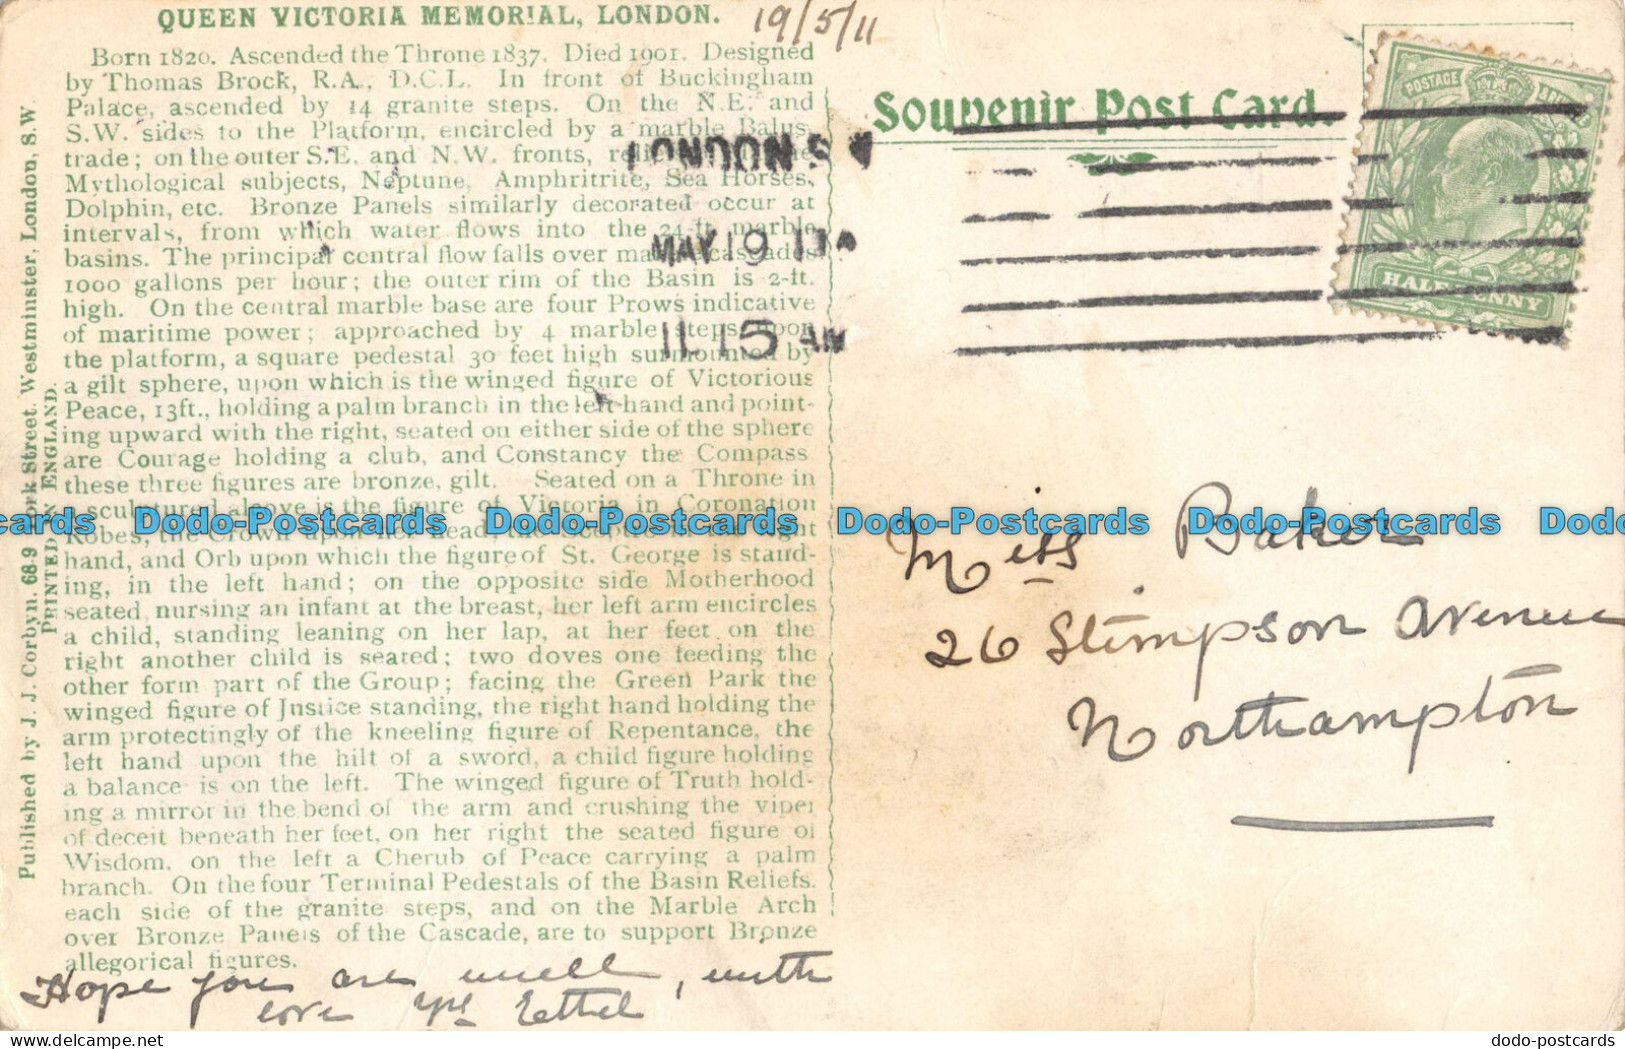 QUEEN VICTORIA MEMORIAL, LONDON.
19/5/11
Born 1820. Ascended the Throne 1837. Died 1901. Designed
by Thomas Brock, R.A., D.C.L. In front of Buckingham
Palace, ascended by 14 granite steps. On the N.E. and
S.W. sides to the Platform, encircled by a marble Balus-
trade; on the outer S.E. and N.W. fronts,
Mythological subjects, Neptune, Amphritrite, Sea Horses,
Dolphin, etc. Bronze Panels similarly decorated occur at
intervals, from which water flows into the 24-ft. marble
basins. The principal central flow falls over marble cascades
1000 gallons per hour; the outer rim of the Basin is 2-ft.
high. On the central marble base are four Prows indicative
of maritime power; approached by 4 marble steps upon
the platform, a square pedestal 30 feet high surmounted by
a gilt sphere, upon which is the winged figure of Victorious
Peace, 13ft., holding a palm branch in the left hand and point-
ing upward with the right, seated on either side of the sphere
are Courage holding a club, and Constancy the Compass
these three figures are bronze, gilt. Seated on a Throne in
sculptured above is the figure of Victoria in Coronation
Robes, the Crown upon her head, the Sceptre in the right
hand, and Orb upon which the figure of St. George is stand-
ing, in the left hand; on the opposite side Motherhood
seated nursing an infant at the breast, her left arm encircles
a child, standing leaning on her lap, at her feet on the
right another child is seated; two doves one feeding the
other form part of the Group; facing the Green Park the
winged figure of Justice standing, the right hand holding the
arm protectingly of the kneeling figure of Repentance, the
left hand upon the hilt of a sword, a child figure holding
a balance is on the left. The winged figure of Truth hold-
ing a mirror in the bend of the arm and crushing the viper
of deceit beneath her feet, on her right the seated figure of
Wisdom, on the left a Cherub of Peace carrying a palm
branch. On the four Terminal Pedestals of the Basin Reliefs,
each side of the granite steps, and on the Marble Arch
over Bronze Panels of the Cascade, are to support Bronze
allegorical figures.
Hope you are well, with
love yrs Ettel
Published by J. J. Corbyn, 68-9 York Street, Westminster, London, S.W.
PRINTED IN ENGLAND.
Souvenir Post Card.
LONDON S W
MAY 19 11
11.15 AM
POSTAGE
HALFPENNY
Miss Baker
26 Stimpson Avenue
Northampton
cards Dodo-Postcards Dodo-Postcards Dodo-Postcards Dodo-Postcards Dodo
dodo-postcards
dodo-postcards